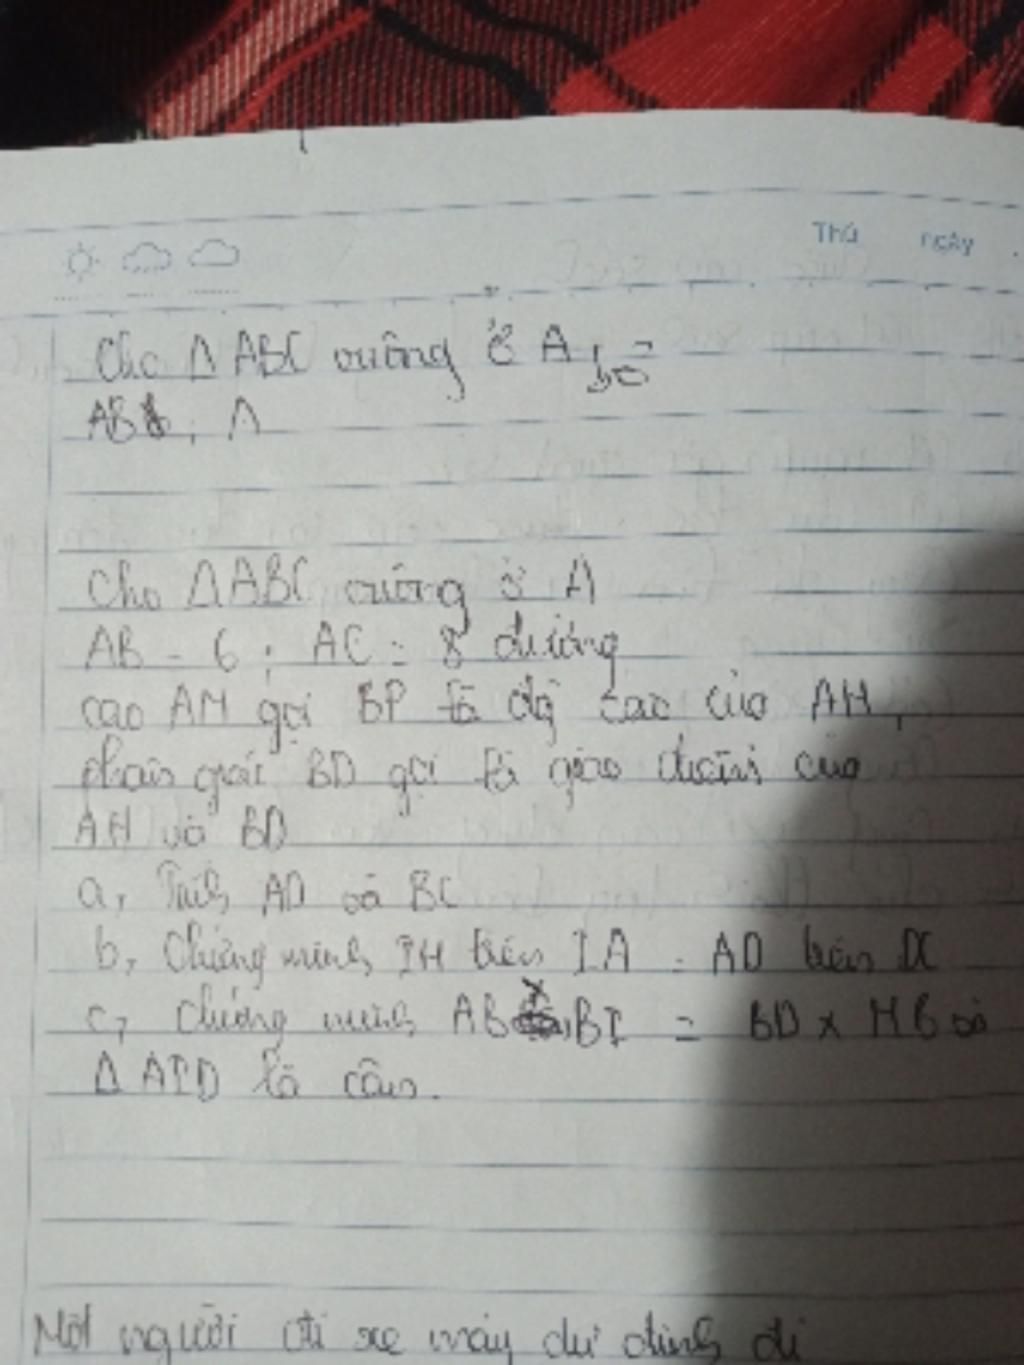 Thứ ngày
Cho Δ ABC vuông ở A
AB, A
Cho ΔABC vuông ở A
AB = 6 ; AC = 8 đường
cao AH gọi BP là độ cao của AH,
phân giác BD gọi là giao điểm của
AH và BD
a, Tính AD và BC
b, Chứng minh IH trên IA = AD trên DC
c, chứng minh AB x BI = BD x HB và
Δ AID là cân.
Một người đi xe máy dự định đi